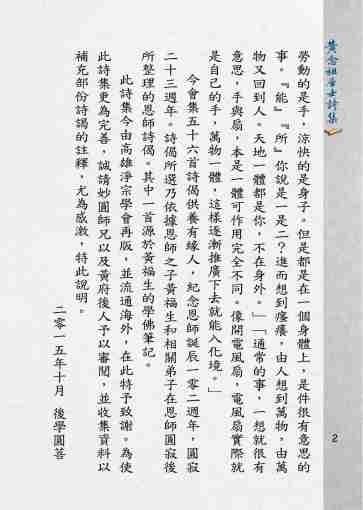 黃念祖居士詩集
勞動的是手，涼快的是身子。但是都是在一個身體上，是件很有意思的
事。『能』『所』你說是一是二？進而想到瘙癢，由人想到萬物，由萬
物又回到人。天地一體都是你，不在身外。」「通常的事，一想就很有
意思，手與扇，本是一體可作用完全不同。像開電風扇，電風扇實際就
是自己的手，萬物一體，這樣逐漸推廣下去就能入化境。」
今會集五十六首詩偈供養有緣人，紀念恩師誕辰一零二週年，圓寂
二十三週年。詩偈所選乃依據恩師之子黃福生和相關弟子在恩師圓寂後
所整理的恩師詩偈。其中一首源於黃福生的學佛筆記。
此詩集今由高雄淨宗學會再版，並流通海外，在此特予致謝。為使
此詩集更為完善，誠請妙圓師兄以及黃府後人予以審閱，並收集資料以
補充部份詩偈的註釋，尤為感激，特此說明。
二零一五年十月　後學圓菩
2